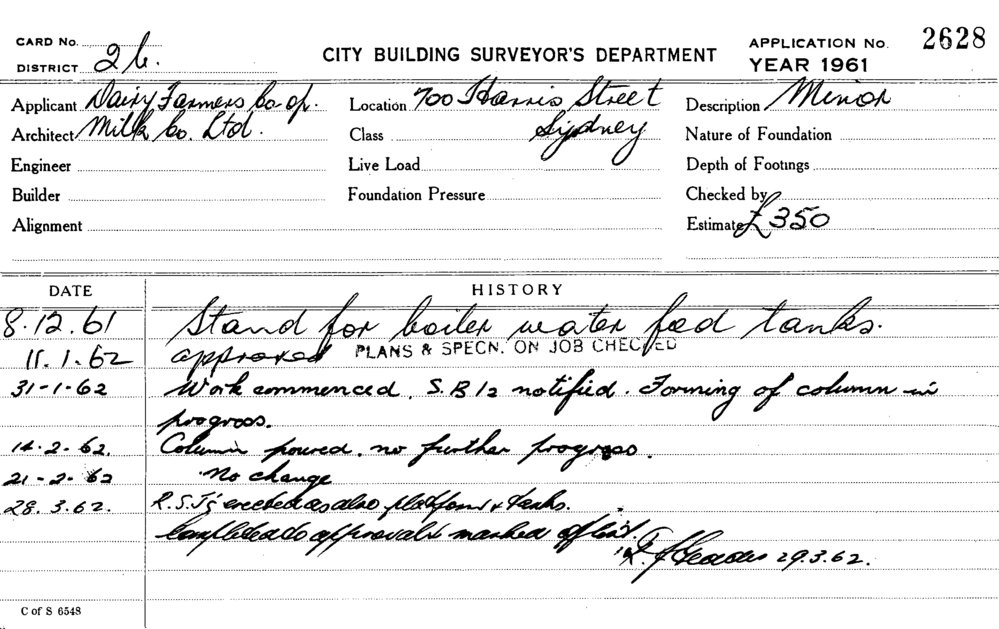 CARD No.
DISTRICT 26.
CITY BUILDING SURVEYOR'S DEPARTMENT
APPLICATION No. 2628
YEAR 1961
Applicant Dairy Farmers Co op.
Architect Milk Co. Ltd.
Engineer
Builder
Alignment
Location 700 Harris Street
Class Sydney
Live Load
Foundation Pressure
Description Minor
Nature of Foundation
Depth of Footings
Checked by
Estimate £350
DATE HISTORY
8.12.61 Stand for boiler water feed tanks.
11.1.62 approved PLANS & SPECN. ON JOB CHECKED
31-1-62 Work commenced. S.B 12 notified. Forming of column in
progress.
14.2.62. Column poured. no further progress.
21-2-62 No change
28.3.62. R.S.J's erected as also platform & tanks.
Completed as approval & marked off list.
29.3.62.
C of S 6548